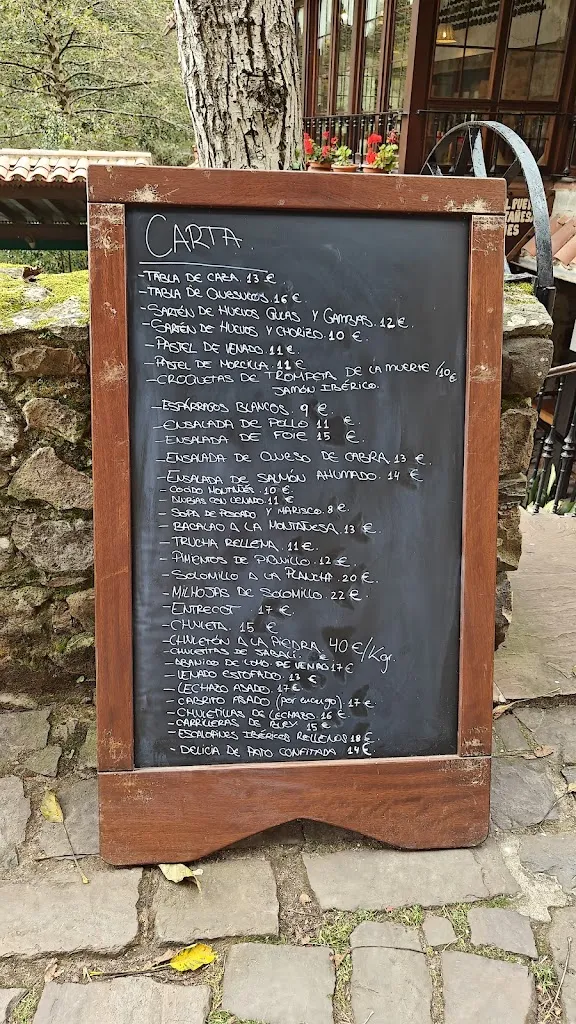 CARTA.
-TABLA DE CAZA. 13 €.
-TABLA DE QUESUCOS. 16 €.
-SARTÉN DE HUEVOS GULAS Y GAMBAS. 12 €.
-SARTÉN DE HUEVOS Y CHORIZO. 10 €.
-PASTEL DE VENADO. 11 €
-PASTEL DE MORCILLA. 11 €
-CROQUETAS DE TROMPETA DE LA MUERTE /10 €
JAMÓN IBÉRICO.
-ESPÁRRAGOS BLANCOS. 9 €.
-ENSALADA DE POLLO 11 €.
-ENSALADA DE FOIE 15 €.
-ENSALADA DE QUESO DE CABRA. 13 €.
-ENSALADA DE SALMÓN AHUMADO. 14 €.
-COCIDO MONTAÑÉS. 10 €.
-ALUBIAS CON VENADO. 11 €
-SOPA DE PESCADO Y MARISCO. 8 €.
-BACALAO A LA MONTAÑESA. 13 €.
-TRUCHA RELLENA. 11 €.
-PIMIENTOS DE PIQUILLO. 12 €.
-SOLOMILLO A LA PLANCHA. 20 €.
-MILHOJAS DE SOLOMILLO. 22 €.
-ENTRECOT. 17 €.
-CHULETA. 15 €
-CHULETÓN A LA PIEDRA 40 €/Kgr.
-CHULETITAS DE JABALÍ. €
-ABANICO DE LOMO DE VENADO 17 €
-VENADO ESTOFADO. 13 €
-LECHAZO ASADO. 17 €.
-CABRITO ASADO (por encargo) 17 €.
-CHULETILLAS DE LECHAZO. 16 €
-CARRILLERAS DE BUEY 15 €.
-ESCALOPINES IBÉRICOS RELLENOS 18 €.
-DELICIA DE PATO CONFITADA 14 €.